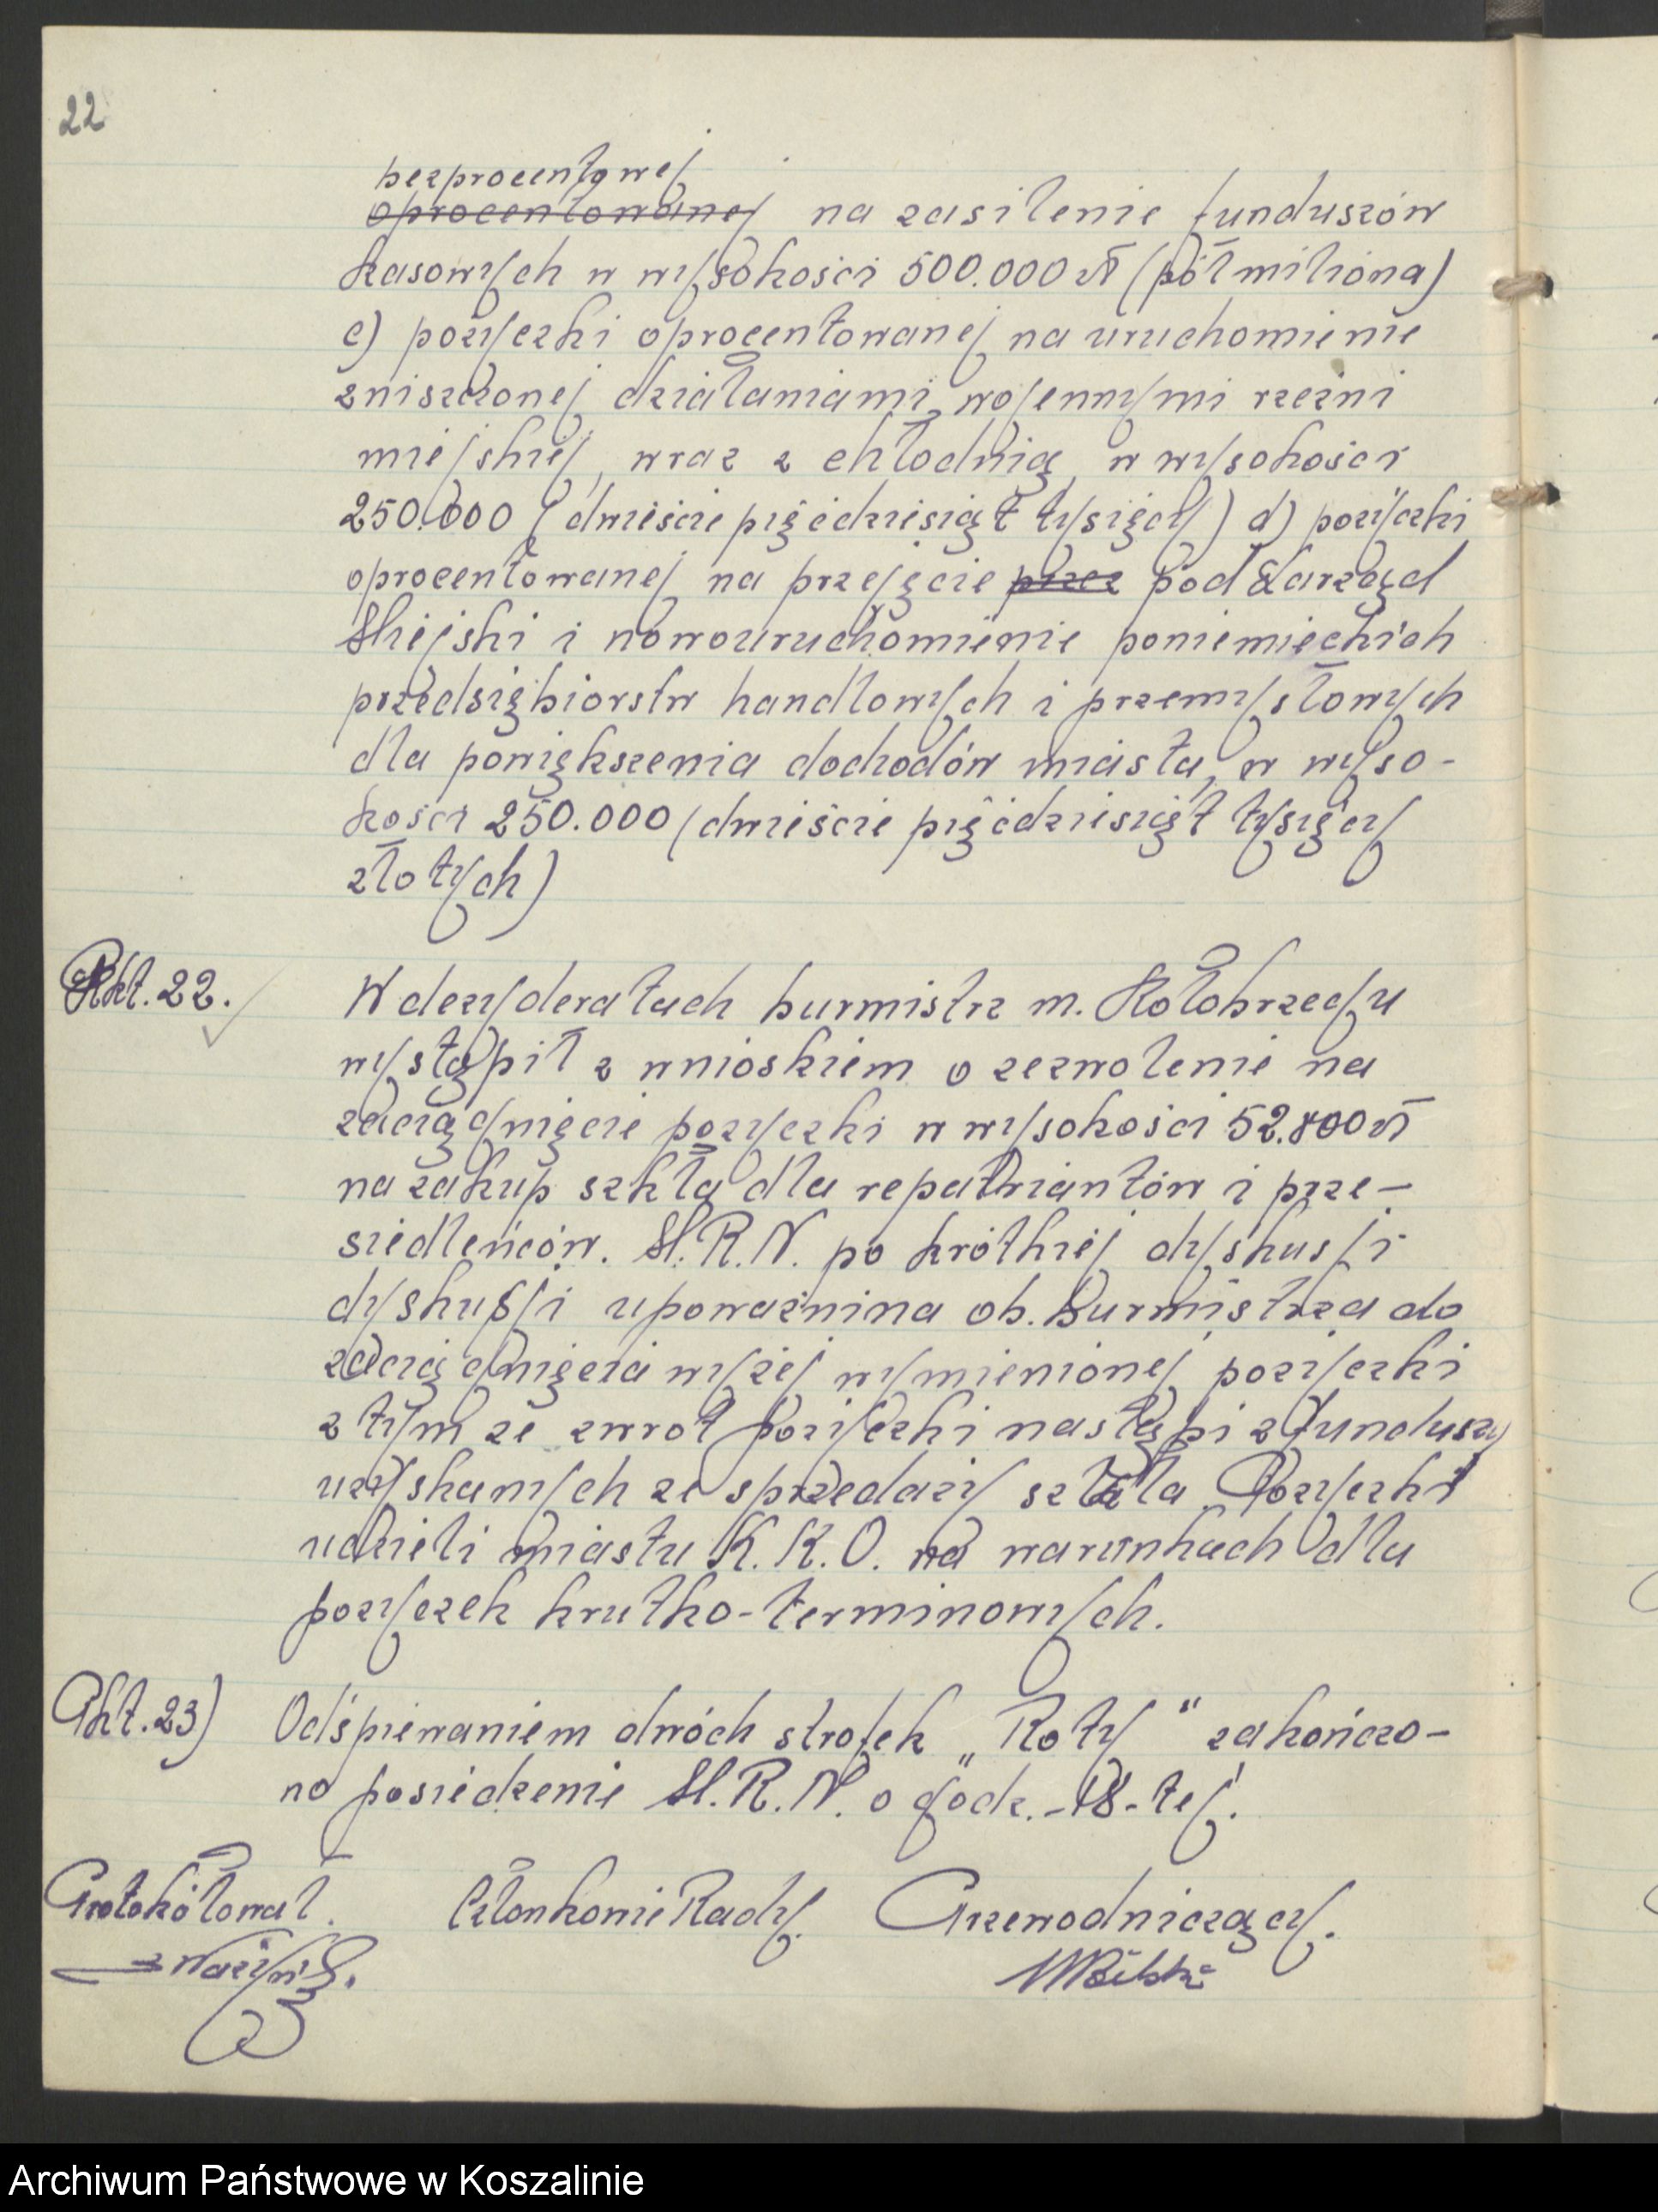 22
bezprocentowej
oprocentowanej na zasilenie funduszów
kasowych w wysokości 500.000 zł (pół miliona)
c) pożyczki oprocentowanej na uruchomienie
zniszczonej działaniami wojennymi rzeźni
miejskiej, wraz z chłodnią, w wysokości
250.000 (dwieście pięćdziesiąt tysięcy) d) pożyczki
oprocentowanej na przejęcie przez pod Zarząd
Miejski i nowouruchomienie poniemieckich
przedsiębiorstw handlowych i przemysłowych
dla powiększenia dochodów miasta, w wyso-
kości 250.000 (dwieście pięćdziesiąt tysięcy
złotych)
Pkt. 22. W dezyderatach burmistrz m. Kołobrzegu
wystąpił z wnioskiem o zezwolenie na
zaciągnięcie pożyczki w wysokości 52.800 zł
na zakup szkła dla repatriantów i prze-
siedleńców. M.R.N. po krótkiej dyskusji
dyskusji upoważnina ob. Burmistrza do
zaciągnięcia wyżej wymienionej pożyczki
z tym że zwrot pożyczki nastąpi z funduszy
uzyskanych ze sprzedaży szkła. Pożyczki
udzieli miastu K.K.O. na warunkach dla
pożyczek krutko-terminowych.
Pkt. 23) Odśpiewaniem dwóch strofek „Roty" zakończo-
no posiedzenie M.R.N. o godz. -18-tej.
Protokółował. Członkowie Rady. Przewodniczący.
Archiwum Państwowe w Koszalinie